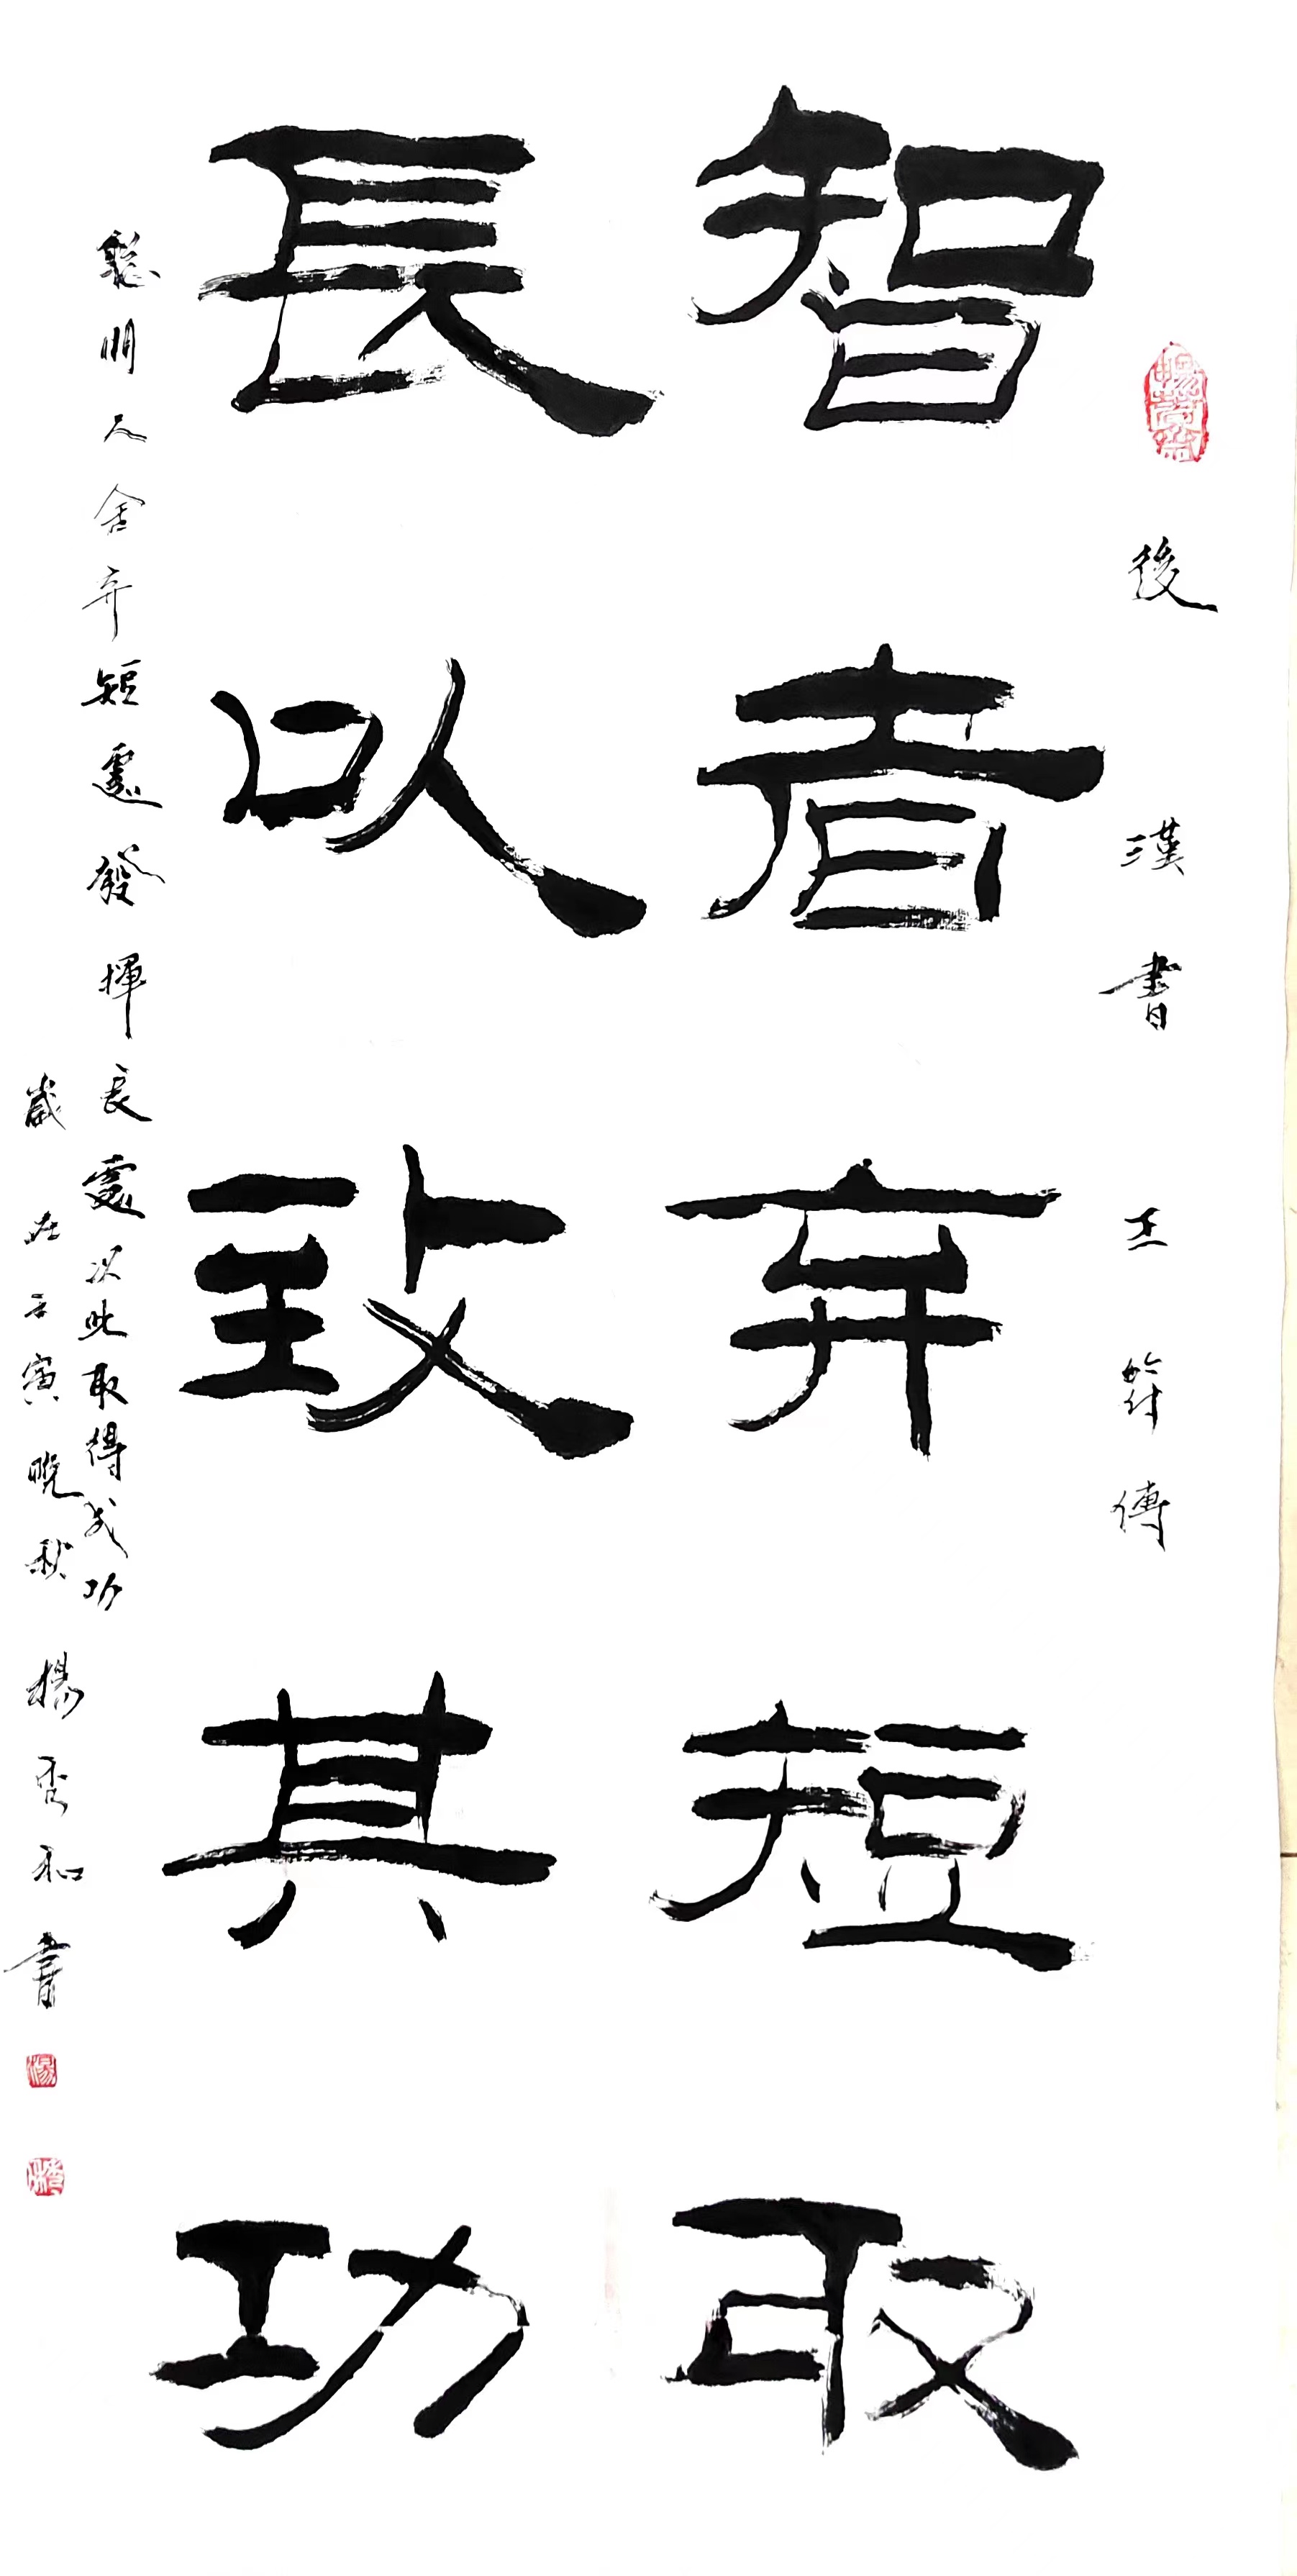 後漢書王符傳
智者弃短取
長以致其功
聰明人舍弃短處發揮長處以此取得成功
歲在壬寅晚秋楊秀和書